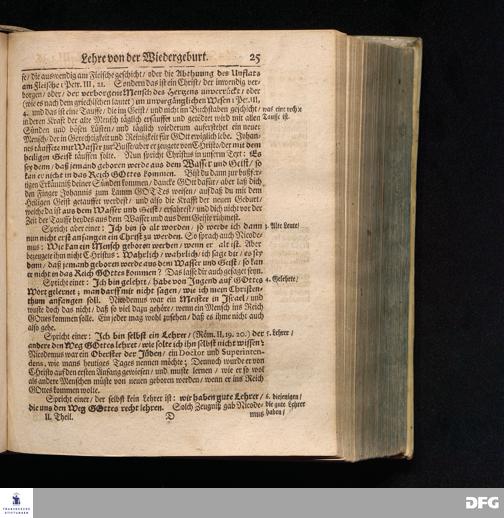 Lehre von der Wiedergeburt. 25
se/ die auswendig am Fleische geschicht/ oder die Abthuung des Unflats
am Fleische; Petr. III, 21. Sondern das ist ein Christ/ der inwendig ver-
borgen/ oder/ der verborgene Mensch des Hertzens unverrückt/ oder
(wie es nach dem griechischen lautet) im unvergänglichen Wesen 1 Pet. III,
4. und das ist eine Tauffe/ die im Geist/ und nicht im Buchstaben geschicht/
in deren Kraft der alte Mensch täglich ersäuffet und getödtet wird mit allen
Sünden und bösen Lüsten/ und täglich wiederum auferstehet ein neuer
Mensch/ der in Gerechtigkeit und Reinigkeit für GOtt ewiglich lebe. Johan-
nes tauffete mit Wasser zur Busse/ aber er zeugete von Christo/ der mit dem
heiligen Geist täuffen solte. Nun spricht Christus in unserm Text: Es
sey denn/ daß jemand geboren werde aus dem Wasser und Geist/ so
kan er nicht in das Reich GOttes kommen. Bist du dann zur bußfer-
tigen Erkäntniß deiner Sünden kommen/ dancke GOtt dafür/ aber laß dich
den Finger Johannis zum Lamm GOTTes weisen/ auf daß du mit dem
Heiligen Geist getauffet werdest/ und also die Krafft der neuen Geburt/
welche da ist aus dem Wasser und Geist/ erfahrest/ und dich nicht vor der
Zeit der Tauffe beydes aus dem Wasser und aus dem Geiste rühmest.
Spricht aber einer: Ich bin so alt worden/ so werde ich dann
nun nicht erst anfangen ein Christ zu werden. So sprach auch Nicode-
mus: Wie kan ein Mensch geboren werden/ wenn er alt ist. Aber
bezeugete ihm nicht Christus: Wahrlich/ wahrlich/ ich sage dir/ es sey
denn/ daß jemand geboren werde aus dem Wasser und Geist/ so kan
er nicht in das Reich GOttes kommen? Das lasse dir auch gesaget seyn.
Spricht einer: Ich bin gelehrt/ habe von Jugend auf GOttes
Wort gelernet; man darff mir nicht sagen/ wie ich mein Christen-
thum anfangen soll. Nicodemus war ein Meister in Israel/ und
wuste doch das nicht/ daß so viel dazu gehöre/ wenn ein Mensch ins Reich
GOttes kommen solle. Ein jeder mag wohl zusehen/ daß es ihme nicht auch
also gehe.
Spricht einer: Ich bin selbst ein Lehrer/ (Röm. II, 19. 20.) der
andere den Weg GOttes lehret/ wie solte ich ihn selbst nicht wissen?
Nicodemus war ein Oberster der Jüden/ ein Doctor und Superinten-
dens, wie mans heutiges Tages nennen möchte; Dennoch wurde er von
Christo auf den ersten Anfang gewiesen/ und muste lernen/ wie er so wol
als andere Menschen müste von neuen geboren werden/ wenn er ins Reich
GOttes kommen wolle.
Spricht einer/ der selbst kein Lehrer ist: wir haben gute Lehrer/
die uns den Weg GOttes recht lehren. Solch Zeugniß gab Nicode-
II. Theil. D mus
was eine rechte
Tauffe ist.
3. Alte Leute/
4. Gelehrte/
5. Lehrer/
6. diejenigen/
die gute Lehrer
haben/
FRANCKESCHE
STIFTUNGEN
DFG